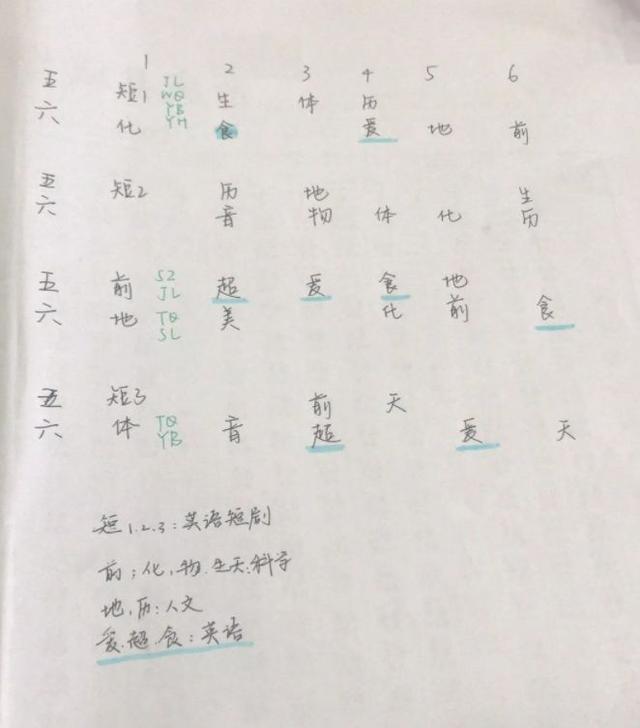 1 2 3 4 5 6
五 短1 JL WQ 生 体 历
六 化 YB YM 食 爱 地 前
五 短2 历 地 生
六 音 物 体 化 历
五 前 SZ JL 超 爱 食 地
六 地 TQ SL 美 化 前 食
五 短3 前 天
六 体 TQ YB 音 超 爱 天
短1.2.3:英语短剧
前;化,物.生天:科学
地,历:人文
爱.超.食:英语